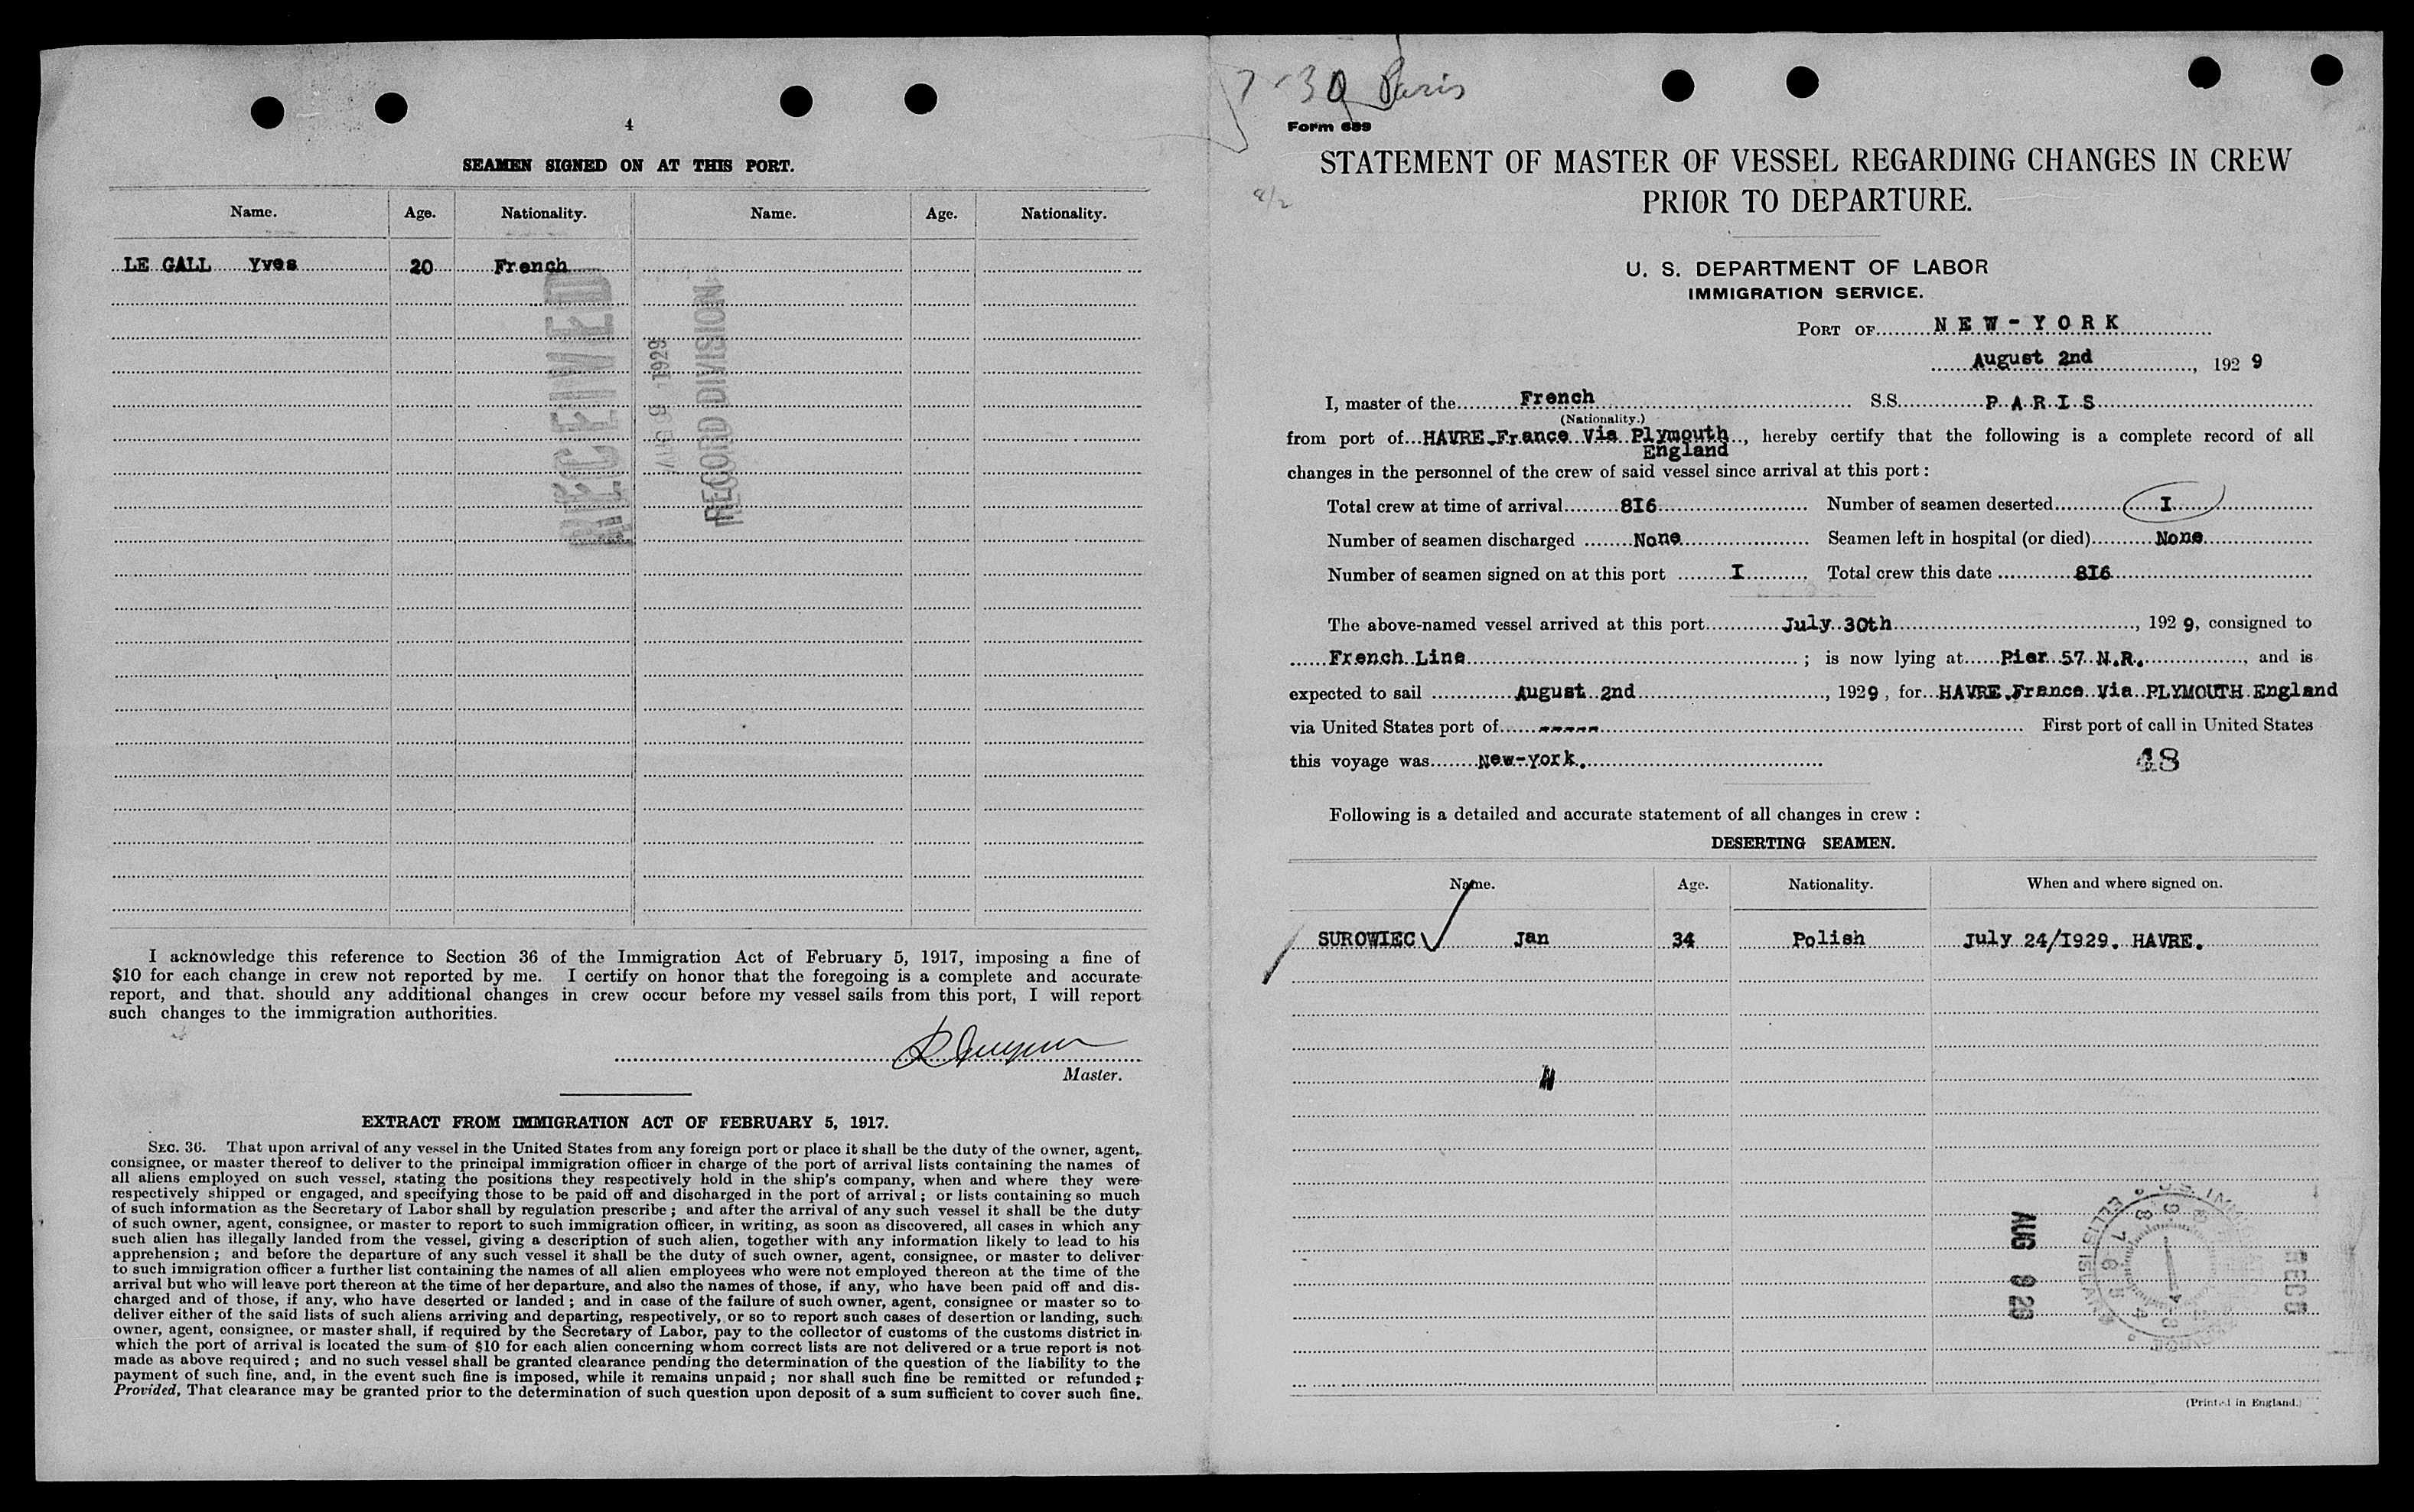 4
SEAMEN SIGNED ON AT THIS PORT.
Name. Age. Nationality. Name. Age. Nationality.
LE GALL Yves 20 French
RECEIVED
AUG 9 1929
RECORD DIVISION
I acknowledge this reference to Section 36 of the Immigration Act of February 5, 1917, imposing a fine of
$10 for each change in crew not reported by me. I certify on honor that the foregoing is a complete and accurate
report, and that. should any additional changes in crew occur before my vessel sails from this port, I will report
such changes to the immigration authorities.
Master.
EXTRACT FROM IMMIGRATION ACT OF FEBRUARY 5, 1917.
SEC. 36. That upon arrival of any vessel in the United States from any foreign port or place it shall be the duty of the owner, agent,
consignee, or master thereof to deliver to the principal immigration officer in charge of the port of arrival lists containing the names of
all aliens employed on such vessel, stating the positions they respectively hold in the ship's company, when and where they were
respectively shipped or engaged, and specifying those to be paid off and discharged in the port of arrival; or lists containing so much
of such information as the Secretary of Labor shall by regulation prescribe; and after the arrival of any such vessel it shall be the duty
of such owner, agent, consignee, or master to report to such immigration officer, in writing, as soon as discovered, all cases in which any
such alien has illegally landed from the vessel, giving a description of such alien, together with any information likely to lead to his
apprehension; and before the departure of any such vessel it shall be the duty of such owner, agent, consignee, or master to deliver
to such immigration officer a further list containing the names of all alien employees who were not employed thereon at the time of the
arrival but who will leave port thereon at the time of her departure, and also the names of those, if any, who have been paid off and dis-
charged and of those, if any, who have deserted or landed; and in case of the failure of such owner, agent, consignee or master so to
deliver either of the said lists of such aliens arriving and departing, respectively, or so to report such cases of desertion or landing, such
owner, agent, consignee, or master shall, if required by the Secretary of Labor, pay to the collector of customs of the customs district in
which the port of arrival is located the sum of $10 for each alien concerning whom correct lists are not delivered or a true report is not
made as above required; and no such vessel shall be granted clearance pending the determination of the question of the liability to the
payment of such fine, and, in the event such fine is imposed, while it remains unpaid; nor shall such fine be remitted or refunded;
Provided, That clearance may be granted prior to the determination of such question upon deposit of a sum sufficient to cover such fine.
7-30 Paris
Form 689
8/2
STATEMENT OF MASTER OF VESSEL REGARDING CHANGES IN CREW
PRIOR TO DEPARTURE.
U. S. DEPARTMENT OF LABOR
IMMIGRATION SERVICE.
PORT OF NEW-YORK
August 2nd, 1929
I, master of the French S.S. PARIS
(Nationality.)
from port of HAVRE.France Via Plymouth, hereby certify that the following is a complete record of all
England
changes in the personnel of the crew of said vessel since arrival at this port:
Total crew at time of arrival 8I6 Number of seamen deserted I
Number of seamen discharged None Seamen left in hospital (or died) None
Number of seamen signed on at this port I Total crew this date 8I6
The above-named vessel arrived at this port July 30th, 1929, consigned to
French Line; is now lying at Pier 57 N.R., and is
expected to sail August 2nd, 1929, for HAVRE.France Via PLYMOUTH England
via United States port of ----- First port of call in United States
this voyage was New-York.
48
Following is a detailed and accurate statement of all changes in crew:
DESERTING SEAMEN.
Name. Age. Nationality. When and where signed on.
SUROWIEC Jan 34 Polish July 24/I929. HAVRE.
AUG 9 29
ELLIS ISLAND
RECD
(Printed in England.)